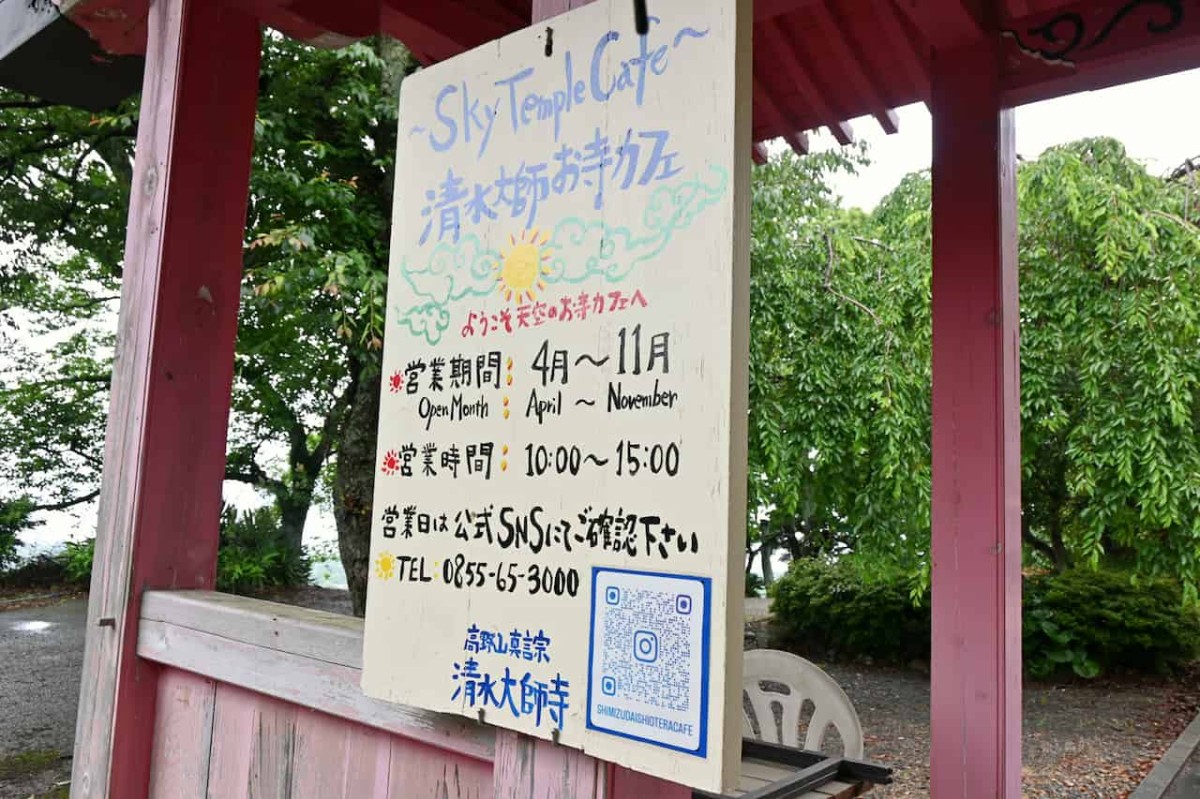 ~Sky Temple Cafe~
清水大師お寺カフェ
ようこそ天空のお寺カフェへ
営業期間: 4月~11月
Open Month : April ~ November
営業時間: 10:00~15:00
営業日は公式SNSにてご確認下さい
TEL:0855-65-3000
高野山真言宗
清水大師寺
SHIMIZUDAISHIOTERACAFE